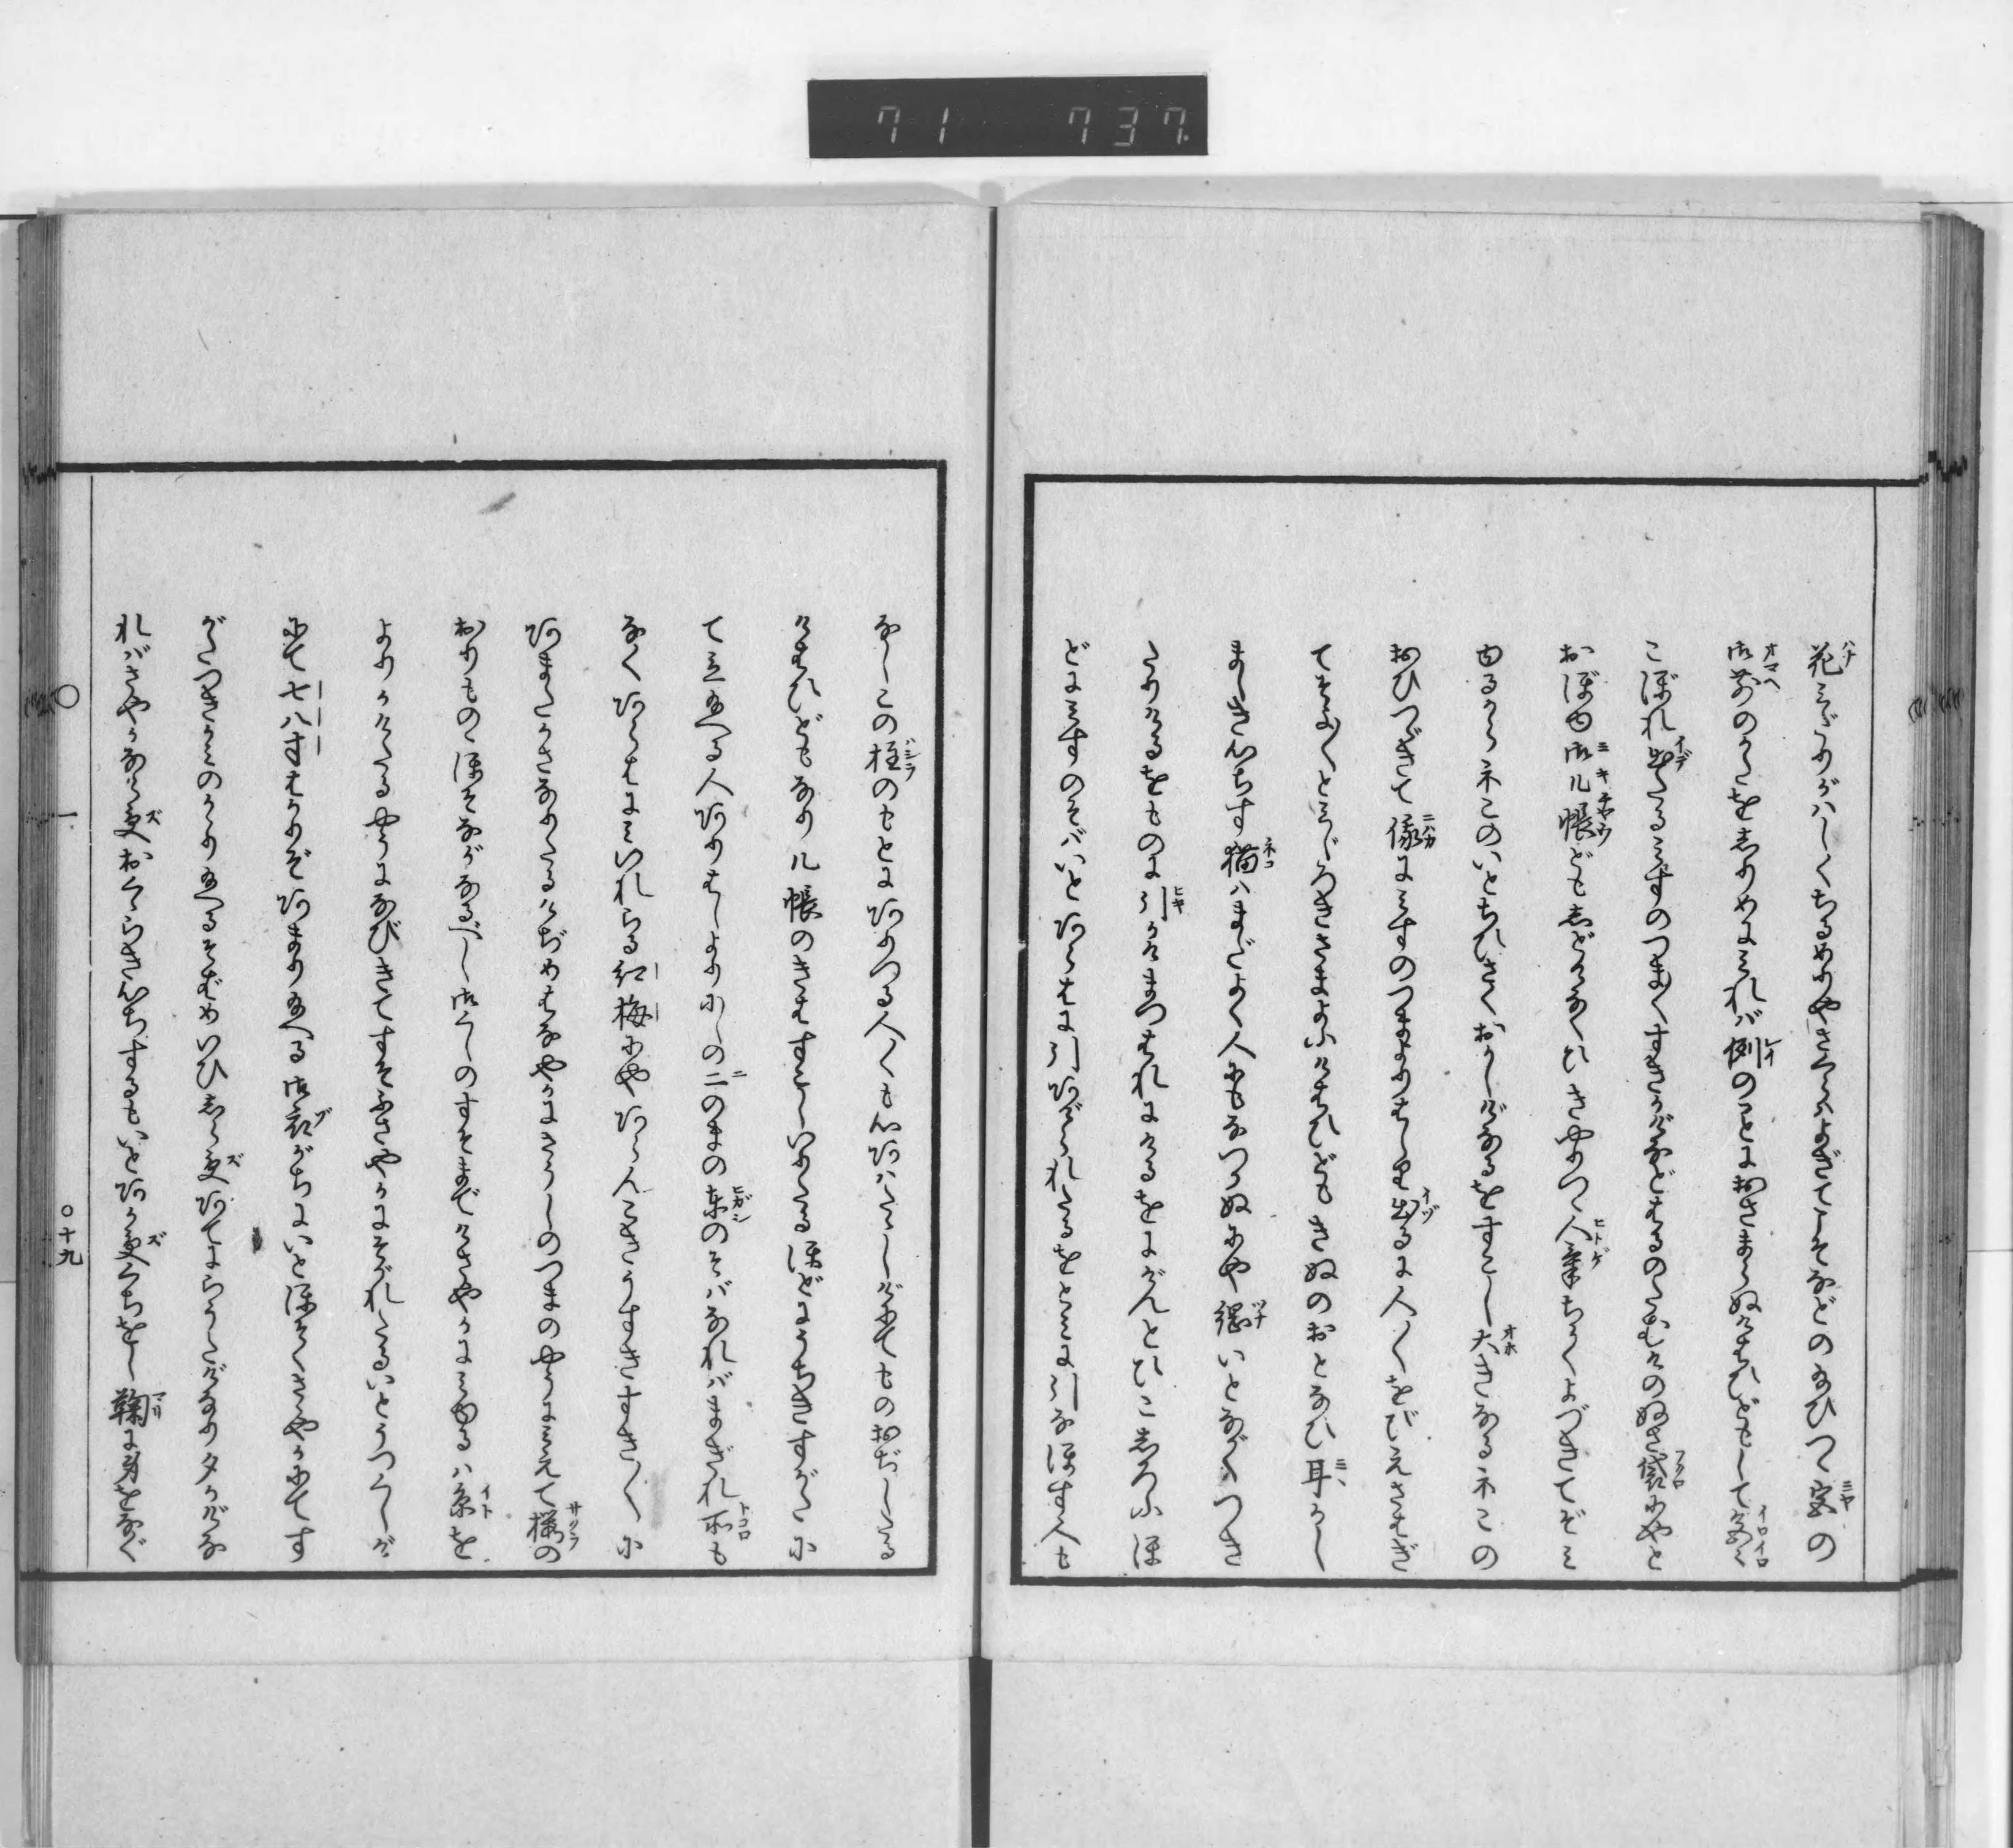 花みだりがハしくちるめりやさくらハよぎてこそなどのたまひつゝ宮の
御前のかたをしりめにみれバ例のことにおさまらぬけはひどもして色々
こぼれ出たるみすのつま〳〵すきかげなどはるのたむけのぬさ袋にやと
おぼゆ御几帳どもしどけなくひきやりつゝ人気ちかくよづきてぞみ
ゆるからネこのいとちひさくおかしげなるをすこし大きなるネこの
おひつゞきて俄にみすのつまよりはしり出るに人〳〵をびえさはぎ
てそよ〳〵とみじろきさまよふけはひどもきぬのおとなひ耳かし
ましき心ちす猫ハまだよく人にもなつかぬにや綱いとながくつき
たりけるをものに引かけまつはれにけるをにげんとひこしろふほ
どにみすのそバいとあらはに引あげられたるをとみに引なほす人も
なしこの柱のもとにありつる人〳〵も心あハたゝしげにてものおぢしたる
けはひどもなり几帳のきはすこしいりたるほどにうちきすがたに
て立給へる人ありはしよりにしの二のまの東のそバなれバまぎれ所も
なくあらはにみいれらる紅梅にやあらんこきうすきすぎ〳〵に
あまたかさなりたるけぢめはなやかにさうしのつまのやうにみえて桜の
おりものゝほそながなるべし御ぐしのすそまでけざやかにみゆるハ糸を
よりかけたるやうになびきてすそふさやかにそがれたるいとうつくしげ
にて七八寸はかりぞあまり給へる御衣がちにいとほそくさゝやかにてす
がたつきかみのかゝり給へるそばめいひしら受あてにらうたげなり夕かげな
れバさやかなら受おくくらき心ちするもいとあか受くちをし鞠に身をなぐ
〇
一
〇十九
71 737